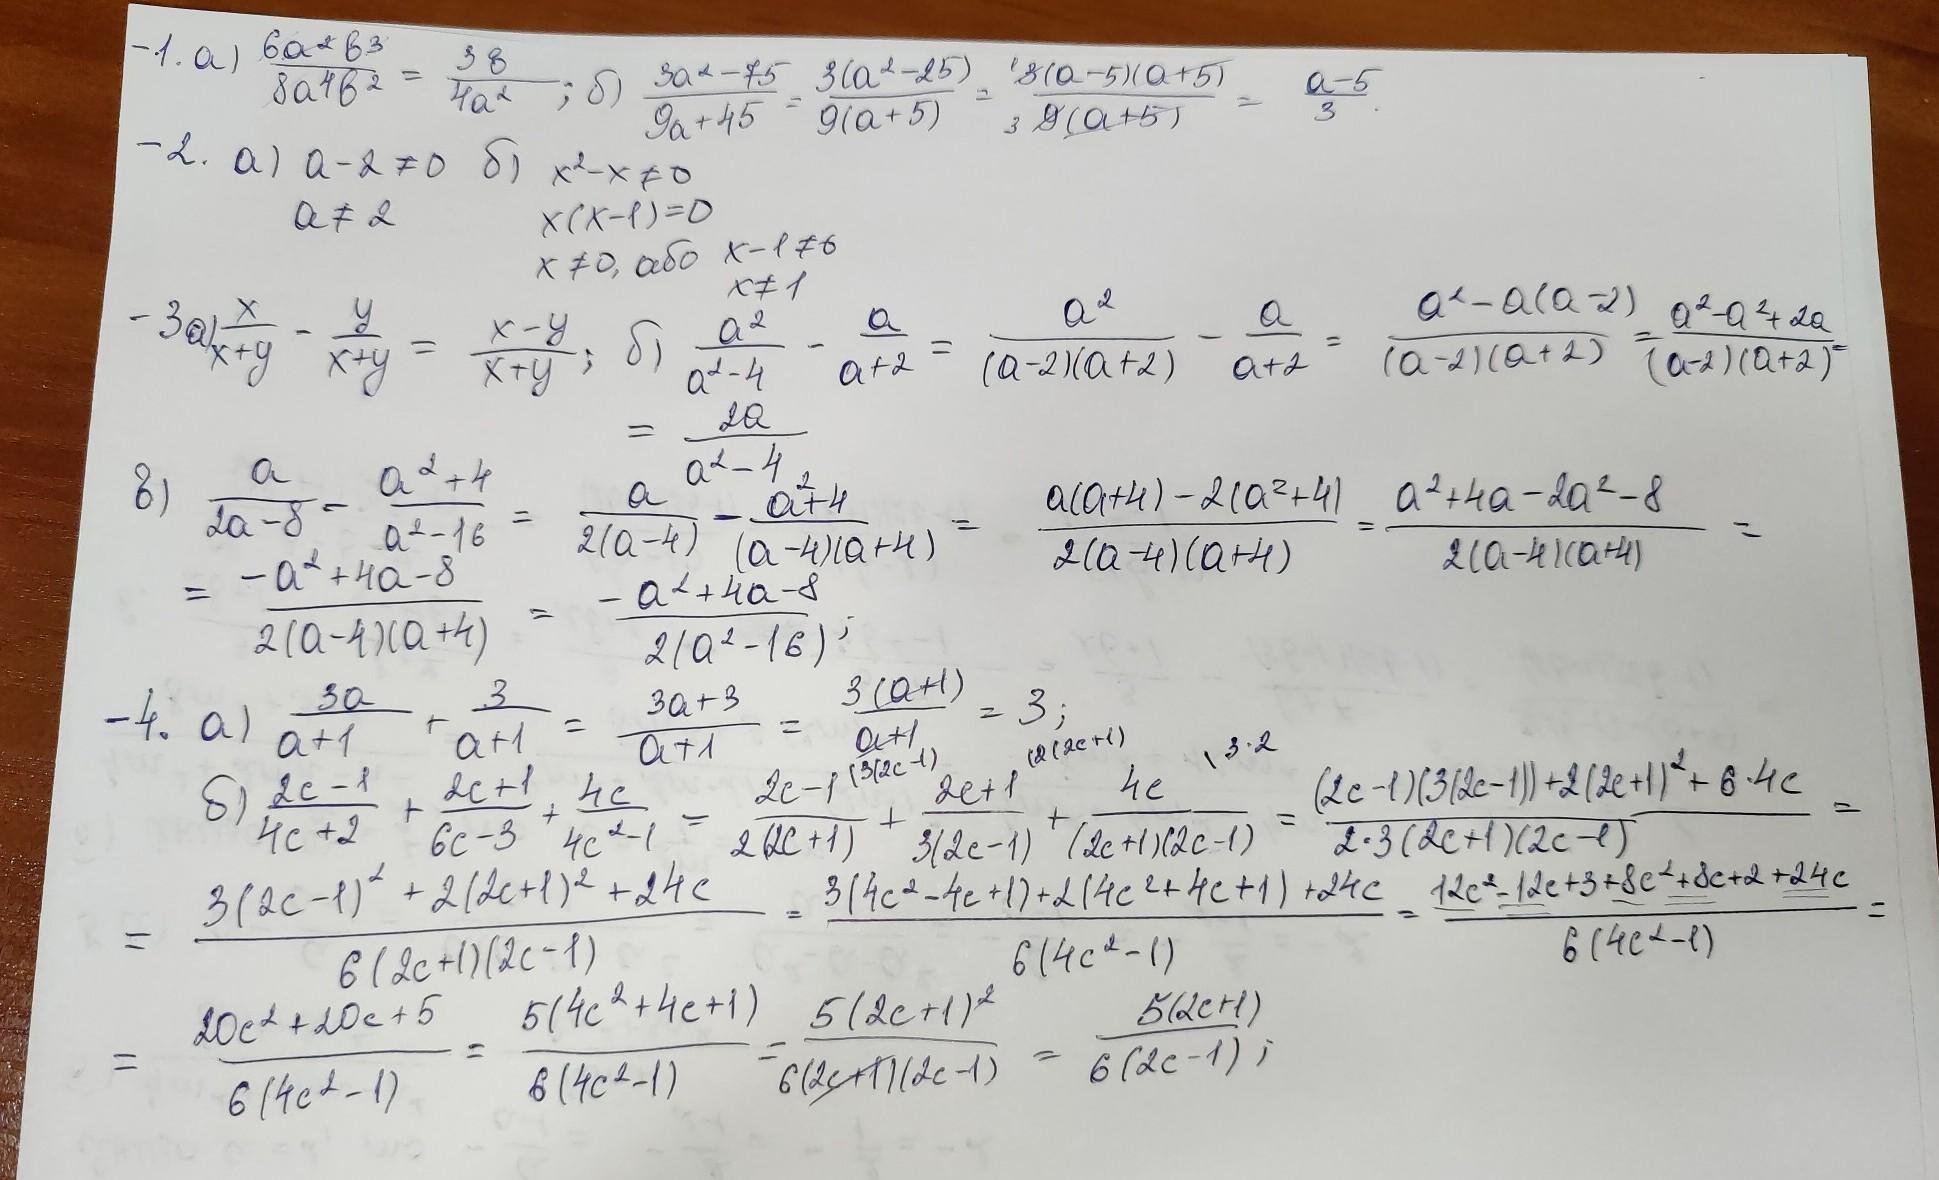 -1. а) 6a²b³/8a⁴b² = 3b/4a²; б) 3a²-75/9a+45 = 3(a²-25)/9(a+5) = ¹3(a-5)(a+5)/₃9(a+5) = a-5/3.
-2. а) a-2≠0 б) x²-x≠0
a≠2 x(x-1)=0
x≠0, або x-1≠0
x≠1
-3а) x/x+y - y/x+y = x-y/x+y; б) a²/a²-4 - a/a+2 = a²/(a-2)(a+2) - a/a+2 = a²-a(a-2)/(a-2)(a+2) = a²-a²+2a/(a-2)(a+2) =
= 2a/a²-4
в) a/2a-8 - a²+4/a²-16 = a/2(a-4) - a²+4/(a-4)(a+4) = a(a+4)-2(a²+4)/2(a-4)(a+4) = a²+4a-2a²-8/2(a-4)(a+4) =
= -a²+4a-8/2(a-4)(a+4) = -a²+4a-8/2(a²-16);
-4. а) 3a/a+1 + 3/a+1 = 3a+3/a+1 = 3(a+1)/a+1 = 3;
б) 2c-1/4c+2 + 2c+1/6c-3 + 4c/4c²-1 = 2c-1 (3(2c-1)/2(2c+1) + 2c+1 (2(2c+1)/3(2c-1) + 4c \3·2/(2c+1)(2c-1) = (2c-1)(3(2c-1))+2(2c+1)²+6·4c/2·3(2c+1)(2c-1) =
= 3(2c-1)²+2(2c+1)²+24c/6(2c+1)(2c-1) = 3(4c²-4c+1)+2(4c²+4c+1)+24c/6(4c²-1) = 12c²-12c+3+8c²+8c+2+24c/6(4c²-1) =
= 20c²+20c+5/6(4c²-1) = 5(4c²+4c+1)/6(4c²-1) = 5(2c+1)²/6(2c+1)(2c-1) = 5(2c+1)/6(2c-1);